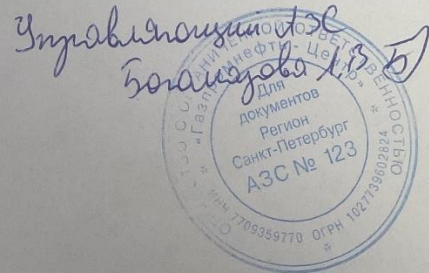 Управляющий АЗС
Богомазова А.В. Б
ОБЩЕСТВО С ОГРАНИЧЕННОЙ ОТВЕТСТВЕННОСТЬЮ
"Газпромнефть-Центр"
Для
документов
Регион
Санкт-Петербург
АЗС № 123
ИНН 7709359770 ОГРН 1027739602824